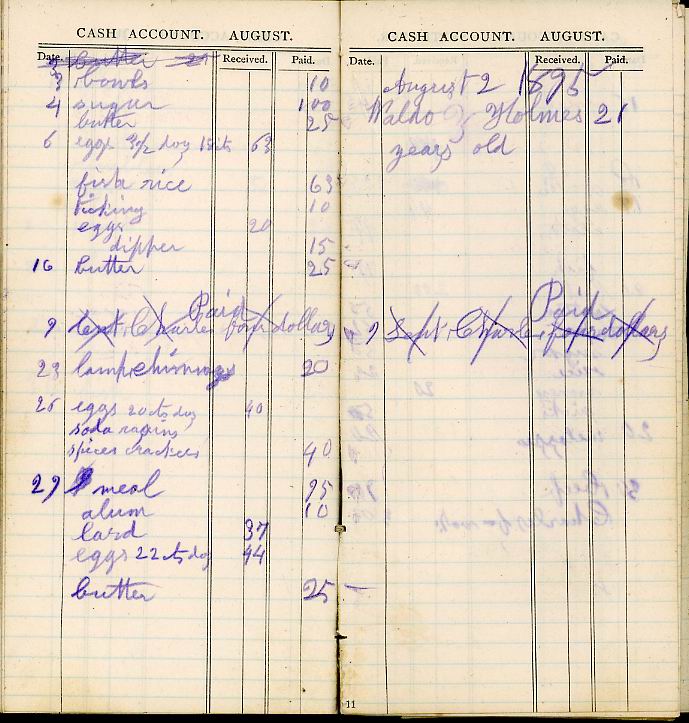 CASH ACCOUNT. AUGUST.
Date. Received. Paid.
butter
3 bowls 10
4 sugar 100
butter 25
6 eggs 3 1/2 doz 18 cts 63
fish rice 63
ticking 10
eggs 20
dipper 15
16 butter 25
Paid
9 Charles four dollars
23 lamp chimneys 20
26 eggs 20 cts doz 40
soda rasins
spices crackers 40
29 meal 95
alum 10
lard 37
eggs 22 cts doz 44
butter 25
CASH ACCOUNT. AUGUST.
Date. Received. Paid.
August 2 1895
Waldo Holmes 21
years old
Paid
9 Sept, Charles four dollars
11